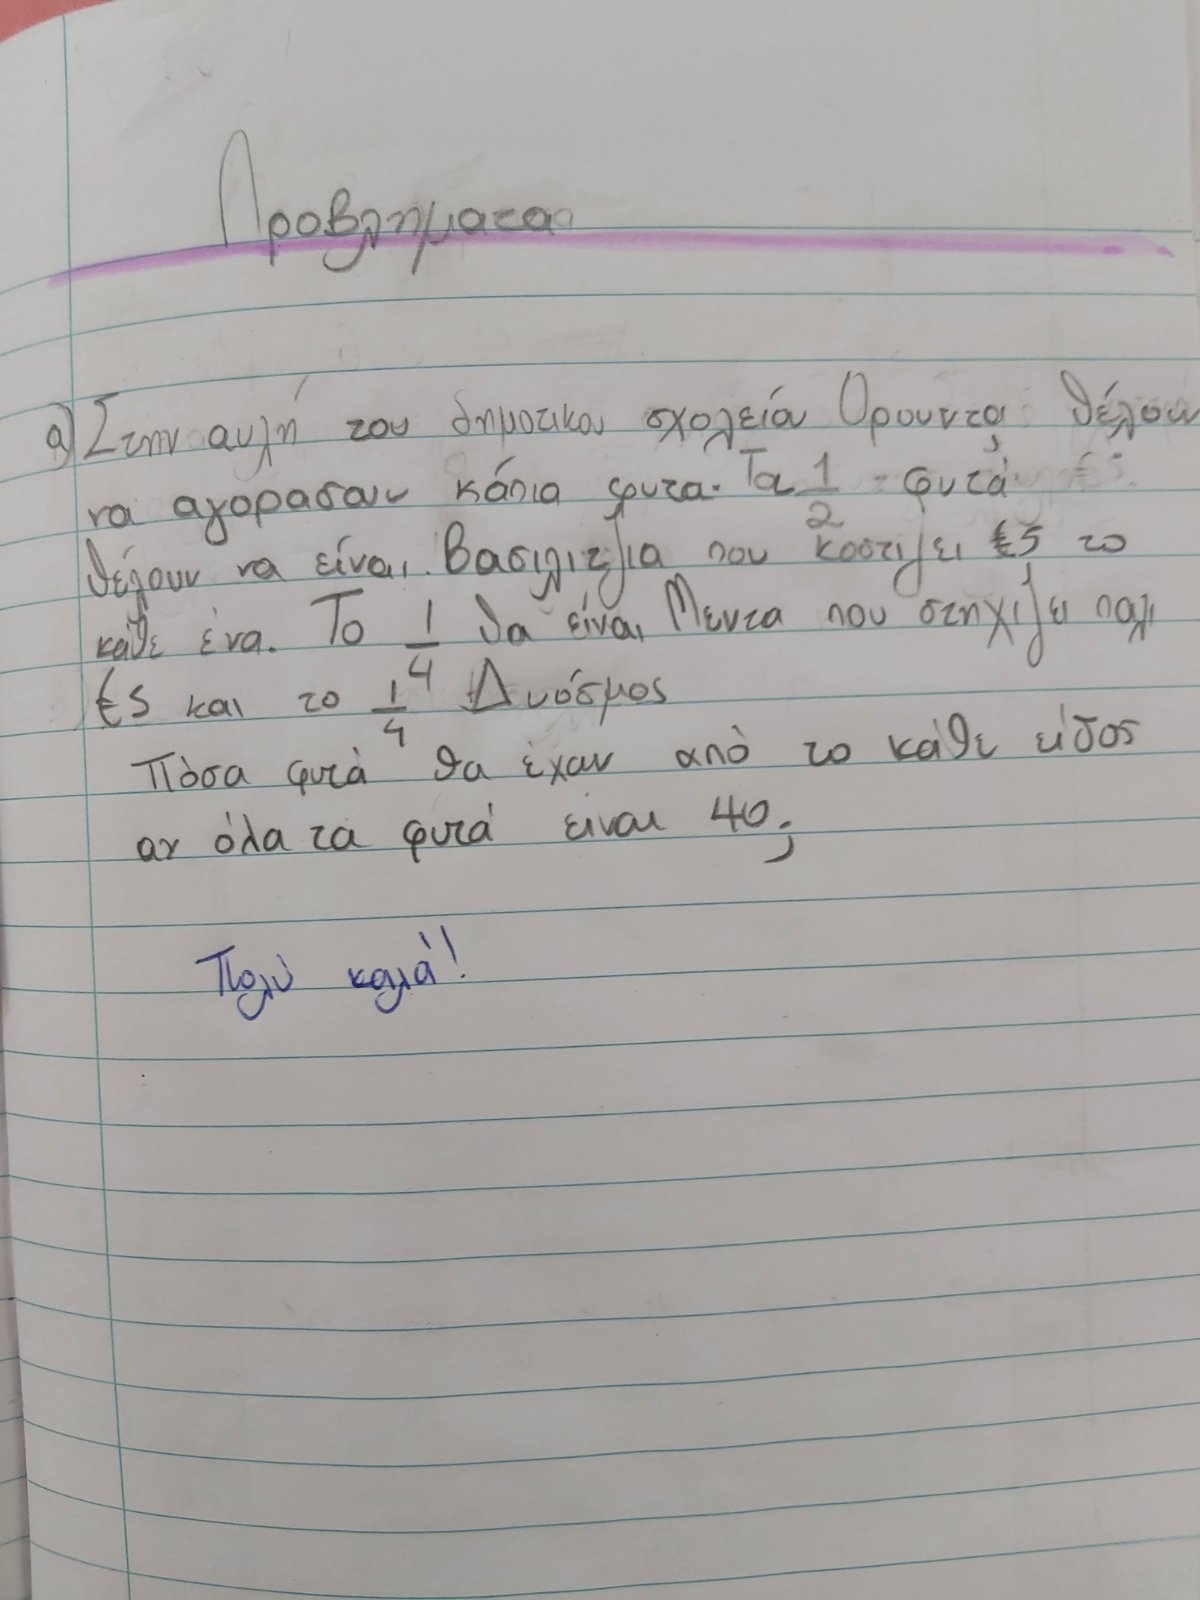 Προβλημάτα
α) Στην αυλή του δημοτικου σχολείου Ορούντας θέλουν
να αγορασουν κάπια φυτα. Τα 1/2 φυτά
θέλουν να είναι Βασιλιτζια που κοστιζει €5 το
κάθε ένα. Το 1/4 θα είναι Μεντα που στηχιζει παλι
€5 και το 1/4 Δυόσμος
Πόσα φυτά θα έχουν από το κάθε είδος
αν όλα τα φυτά είναι 40;
Πολύ καλά!